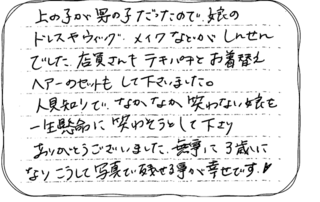 上の子が男の子だったので、娘の
ドレスやウィッグ、メイクなどがしんせん
でした。店員さんもテキパキとお着替え
ヘアーのセットもして下さいました。
人見知りで、なかなか笑わない娘を
一生懸命に笑わそうとして下さり
ありがとうございました。無事に3歳に
なりこうして写真で残せる事が幸せです!♥